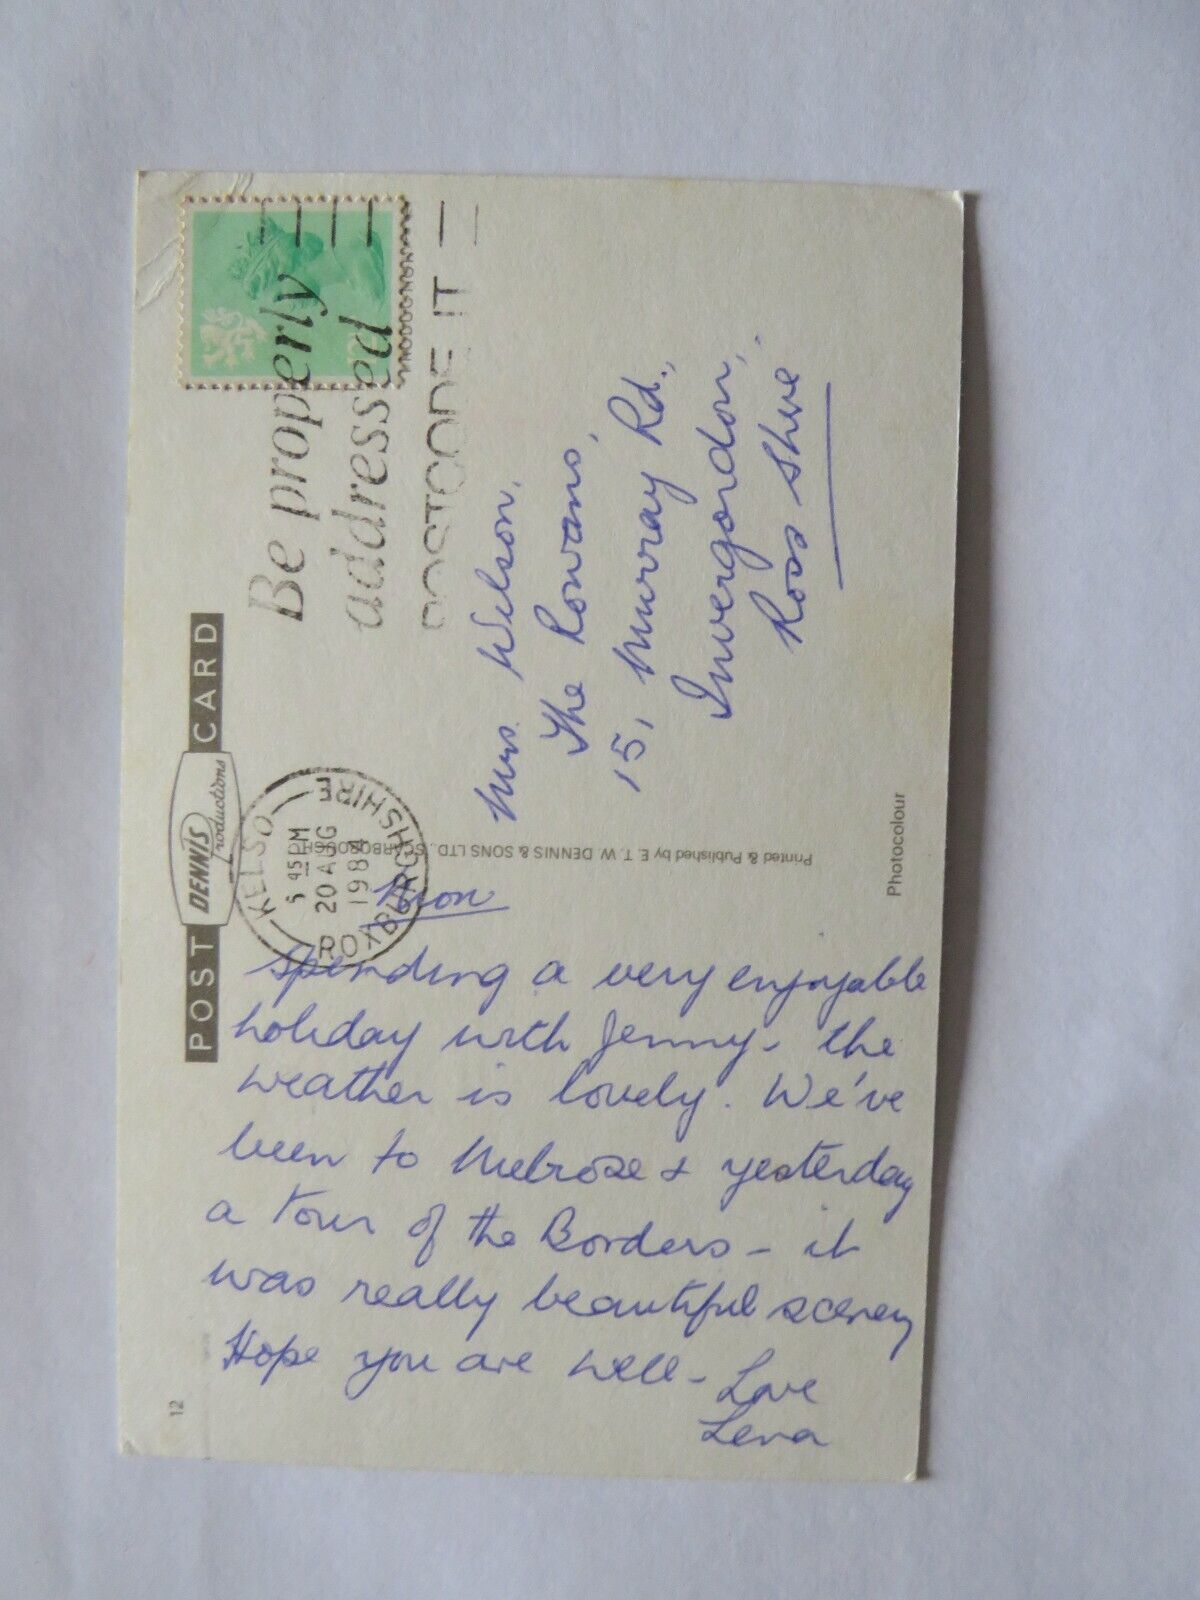 POST DENNIS Productions CARD
12
KELSO
5 45 PM
20 AUG
1984
ROXBURGHSHIRE
Be properly
addressed
POSTCODE IT
Mon
Spending a very enjoyable
holiday with Jenny - the
weather is lovely. We've
been to Melrose & yesterday
a tour of the Borders - it
was really beautiful scenery
Hope you are well - Love
Lena
Printed & Published by E. T. W. DENNIS & SONS LTD., SCARBOROUGH
Photocolour
Mrs. Wilson,
The Rowans,
15, Murray Rd.,
Invergordon,
Ross Shire.